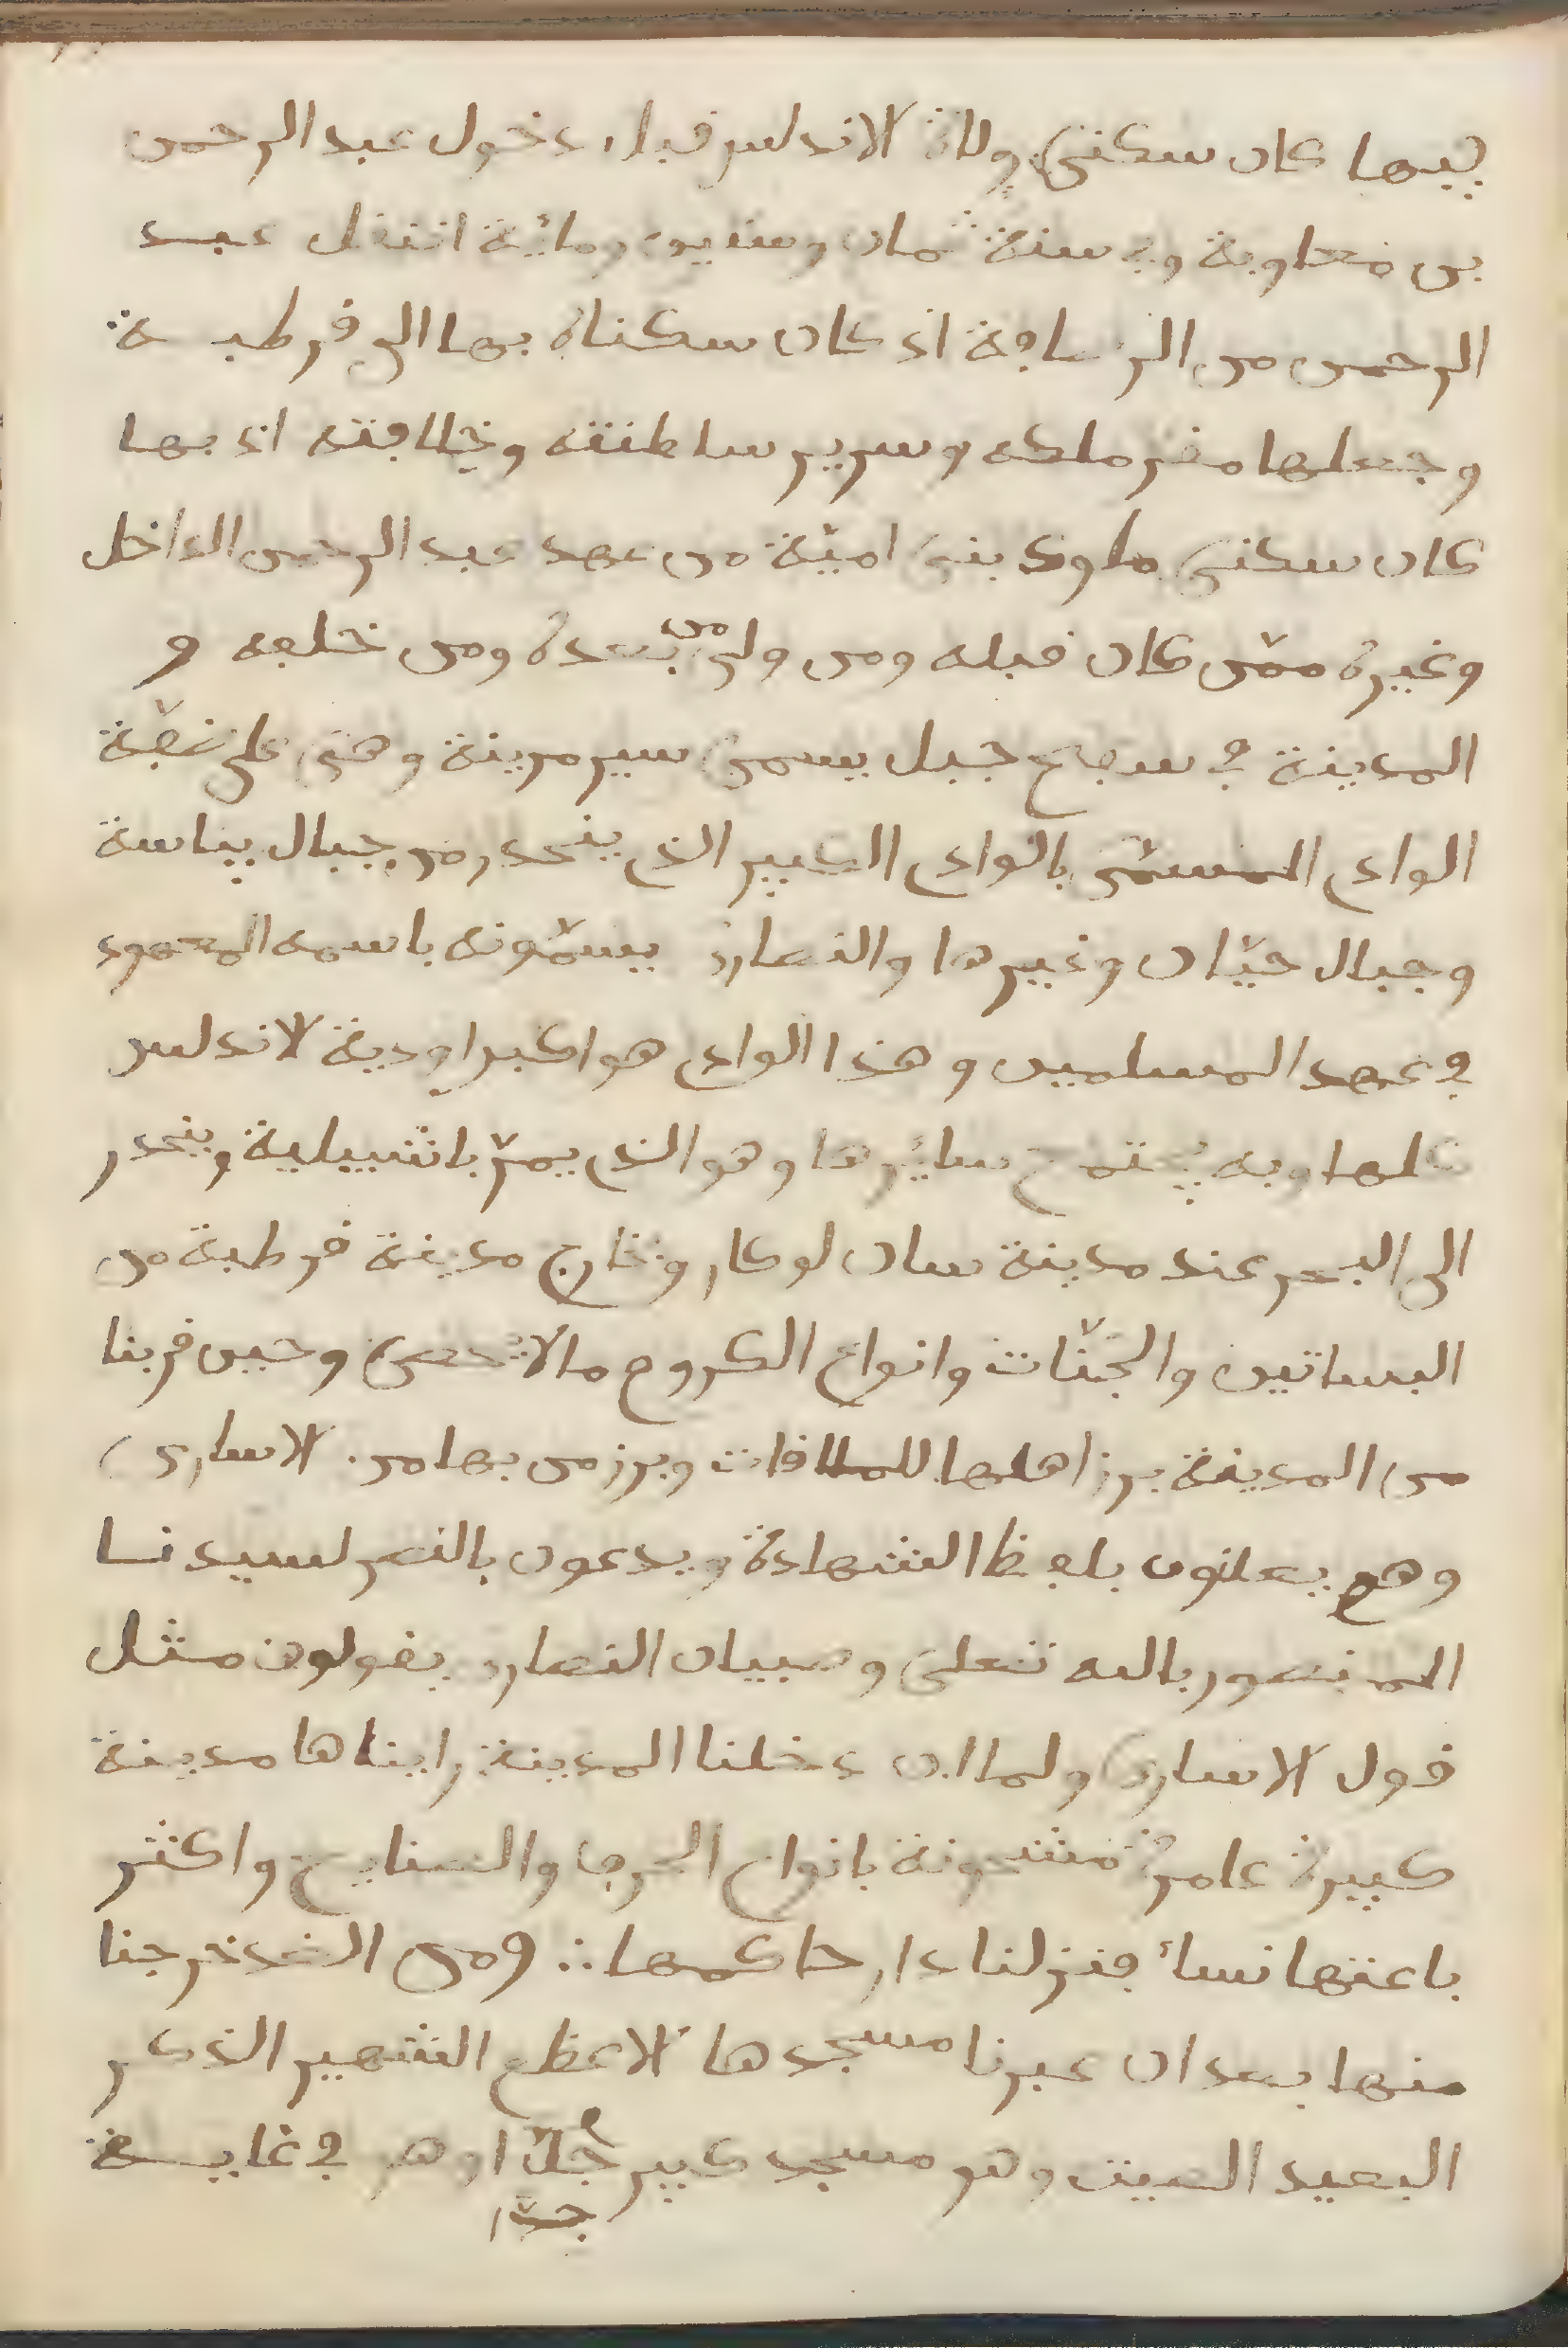 فيها كان سكنى ولاة الاندلس قبل دخول عبد الرحمن
بن معاوية وفي سنة ثمان وستين ومائة انتقل عبد
الرحمن من الرصافة اذ كان سكناه بها الى قرطبة
وجعلها مقر ملكه وسرير سلطنته وخلافته اذ بها
كان سكنى ملوك بني امية من عهد عبد الرحمن الداخل
وغيره ممن كان قبله ومن ولي من بعده ومن خلفه و
المدينة في سفح جبل يسمى سير مرينة وهي على ضفّة
الوادي المسمّى بالوادي الكبير الذي ينحدر من جبال بياسة
وجبال جيّان وغيرها والنصارى يسمّونه باسمه المعهود
في عهد المسلمين وهذا الوادي هو اكبر اودية الاندلس
كلها وبه يجتمع سائرها وهو الذي يمرّ باشبيلية وينحدر
الى البحر عند مدينة سان لوكار وخارج مدينة قرطبة من
البساتين والجنّات وانواع الكروم ما لا يحصى وحين قربنا
من المدينة برز اهلها للملاقات وبرز من بها من الاسارى
وهم يعلنون بلفظ الشهادة ويدعون بالنصر لسيدنا
المنصور بالله تعلى وصبيان النصارى يقولون مثل
قول الاسارى ولما ان دخلنا المدينة رايناها مدينة
كبيرة عامرة مشحونة بانواع الحرف والصنايع واكثر
باعتها نساء فنزلنا دار حاكمها ∴ ومن الغد خرجنا
منها بعد ان عبرنا مسجدها الاعظم الشهير الذكر
البعيد الصيت وهو مسجد كبير جدّا وهو في غاية
جدّا